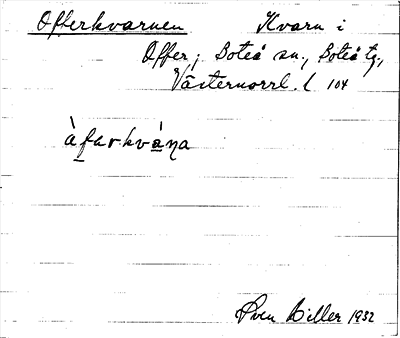 Offerkvarnen Kvarn i
Offer; Boteå sn., Boteå tg.,
Västernorrl. l 104
àfarkvàna
Sven Hiller 1932